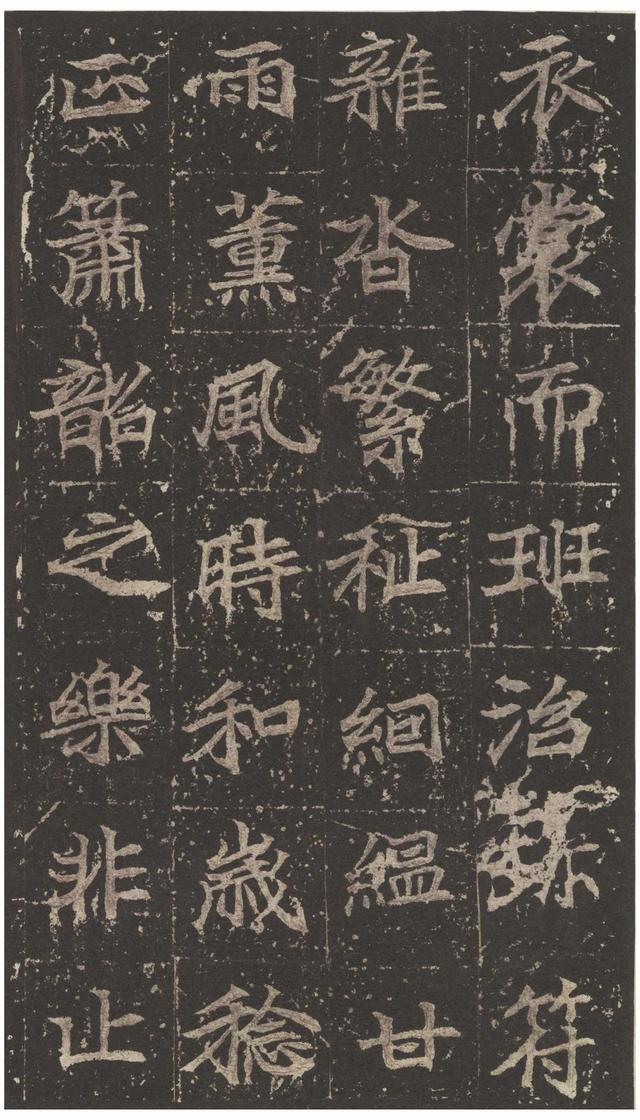 衣裳而班治符
雜沓繁祉絪縕甘
雨薫風時和歲稔
正簫韶之樂非止